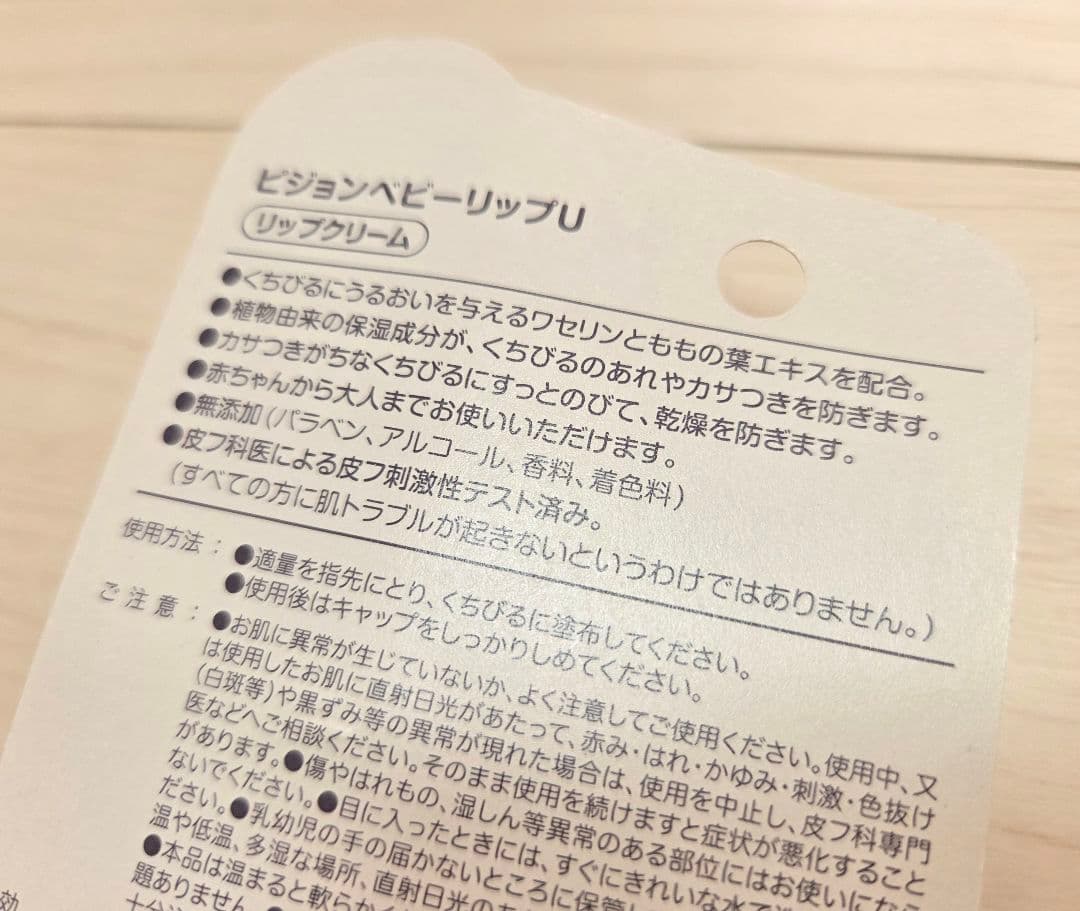 ピジョンベビーリップU
リップクリーム
●くちびるにうるおいを与えるワセリンとももの葉エキスを配合。
●植物由来の保湿成分が、くちびるのあれやカサつきを防ぎます。
●カサつきがちなくちびるにすっとのびて、乾燥を防ぎます。
●赤ちゃんから大人までお使いいただけます。
●無添加(パラベン、アルコール、香料、着色料)
●皮フ科医による皮フ刺激性テスト済み。
(すべての方に肌トラブルが起きないというわけではありません。)
使用方法：●適量を指先にとり、くちびるに塗布してください。
●使用後はキャップをしっかりしめてください。
ご注意：●お肌に異常が生じていないか、よく注意してご使用ください。使用中、又
は使用したお肌に直射日光があたって、赤み・はれ・かゆみ・刺激・色抜け
(白斑等)や黒ずみ等の異常が現れた場合は、使用を中止し、皮フ科専門
医などへご相談ください。そのまま使用を続けますと症状が悪化すること
があります。●傷やはれもの、湿しん等異常のある部位にはお使いになら
ないでください。●目に入ったときには、すぐにきれいな水で
ださい。●乳幼児の手の届かないところに保管し
温や低温、多湿な場所、直射日光の
●本品は温まると軟らかく
題ありません
効